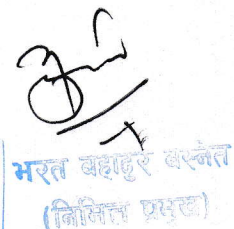 भरत बहादुर बस्नेत
(निमित्त प्रमुख)